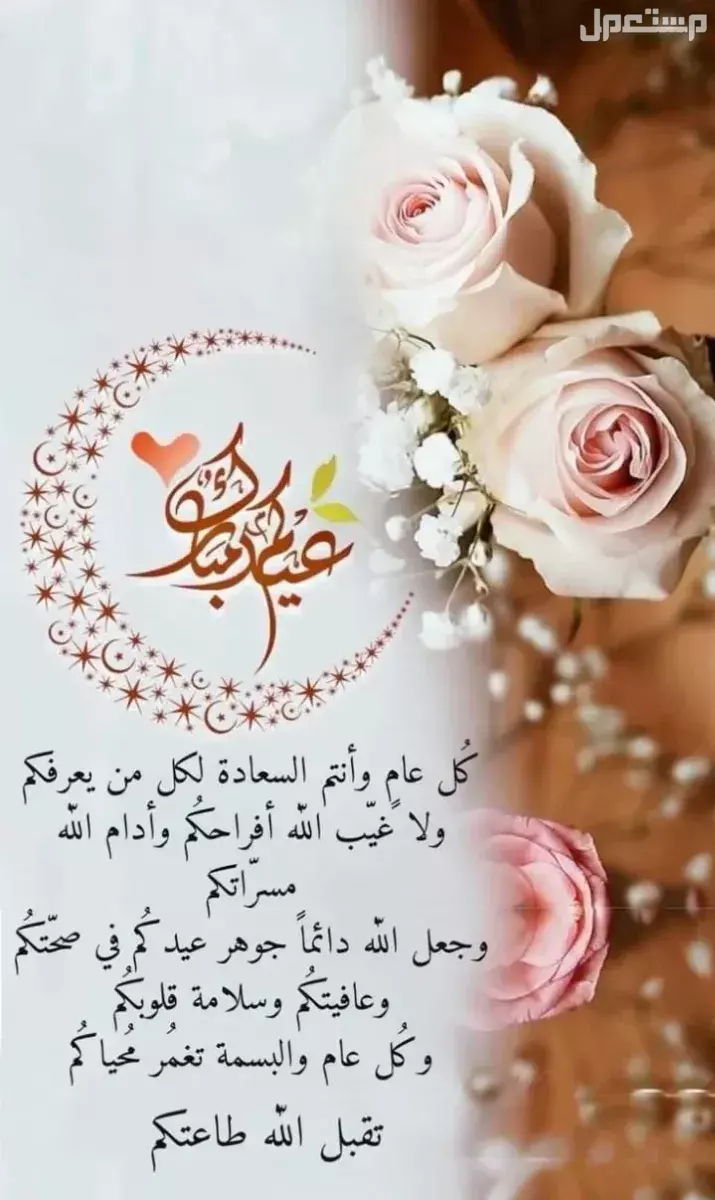 مستعمل
عيدكم مبارك
كُل عامٍ وأنتم السعادة لكل من يعرفكم
ولا غيّب الله أفراحكُم وأدام الله
مسرّاتكم
وجعل الله دائماً جوهر عيدكُم في صحّتكُم
وعافيتكُم وسلامة قلوبكُم
وكُل عام والبسمة تغمُر مُحياكُم
تقبل الله طاعتكم